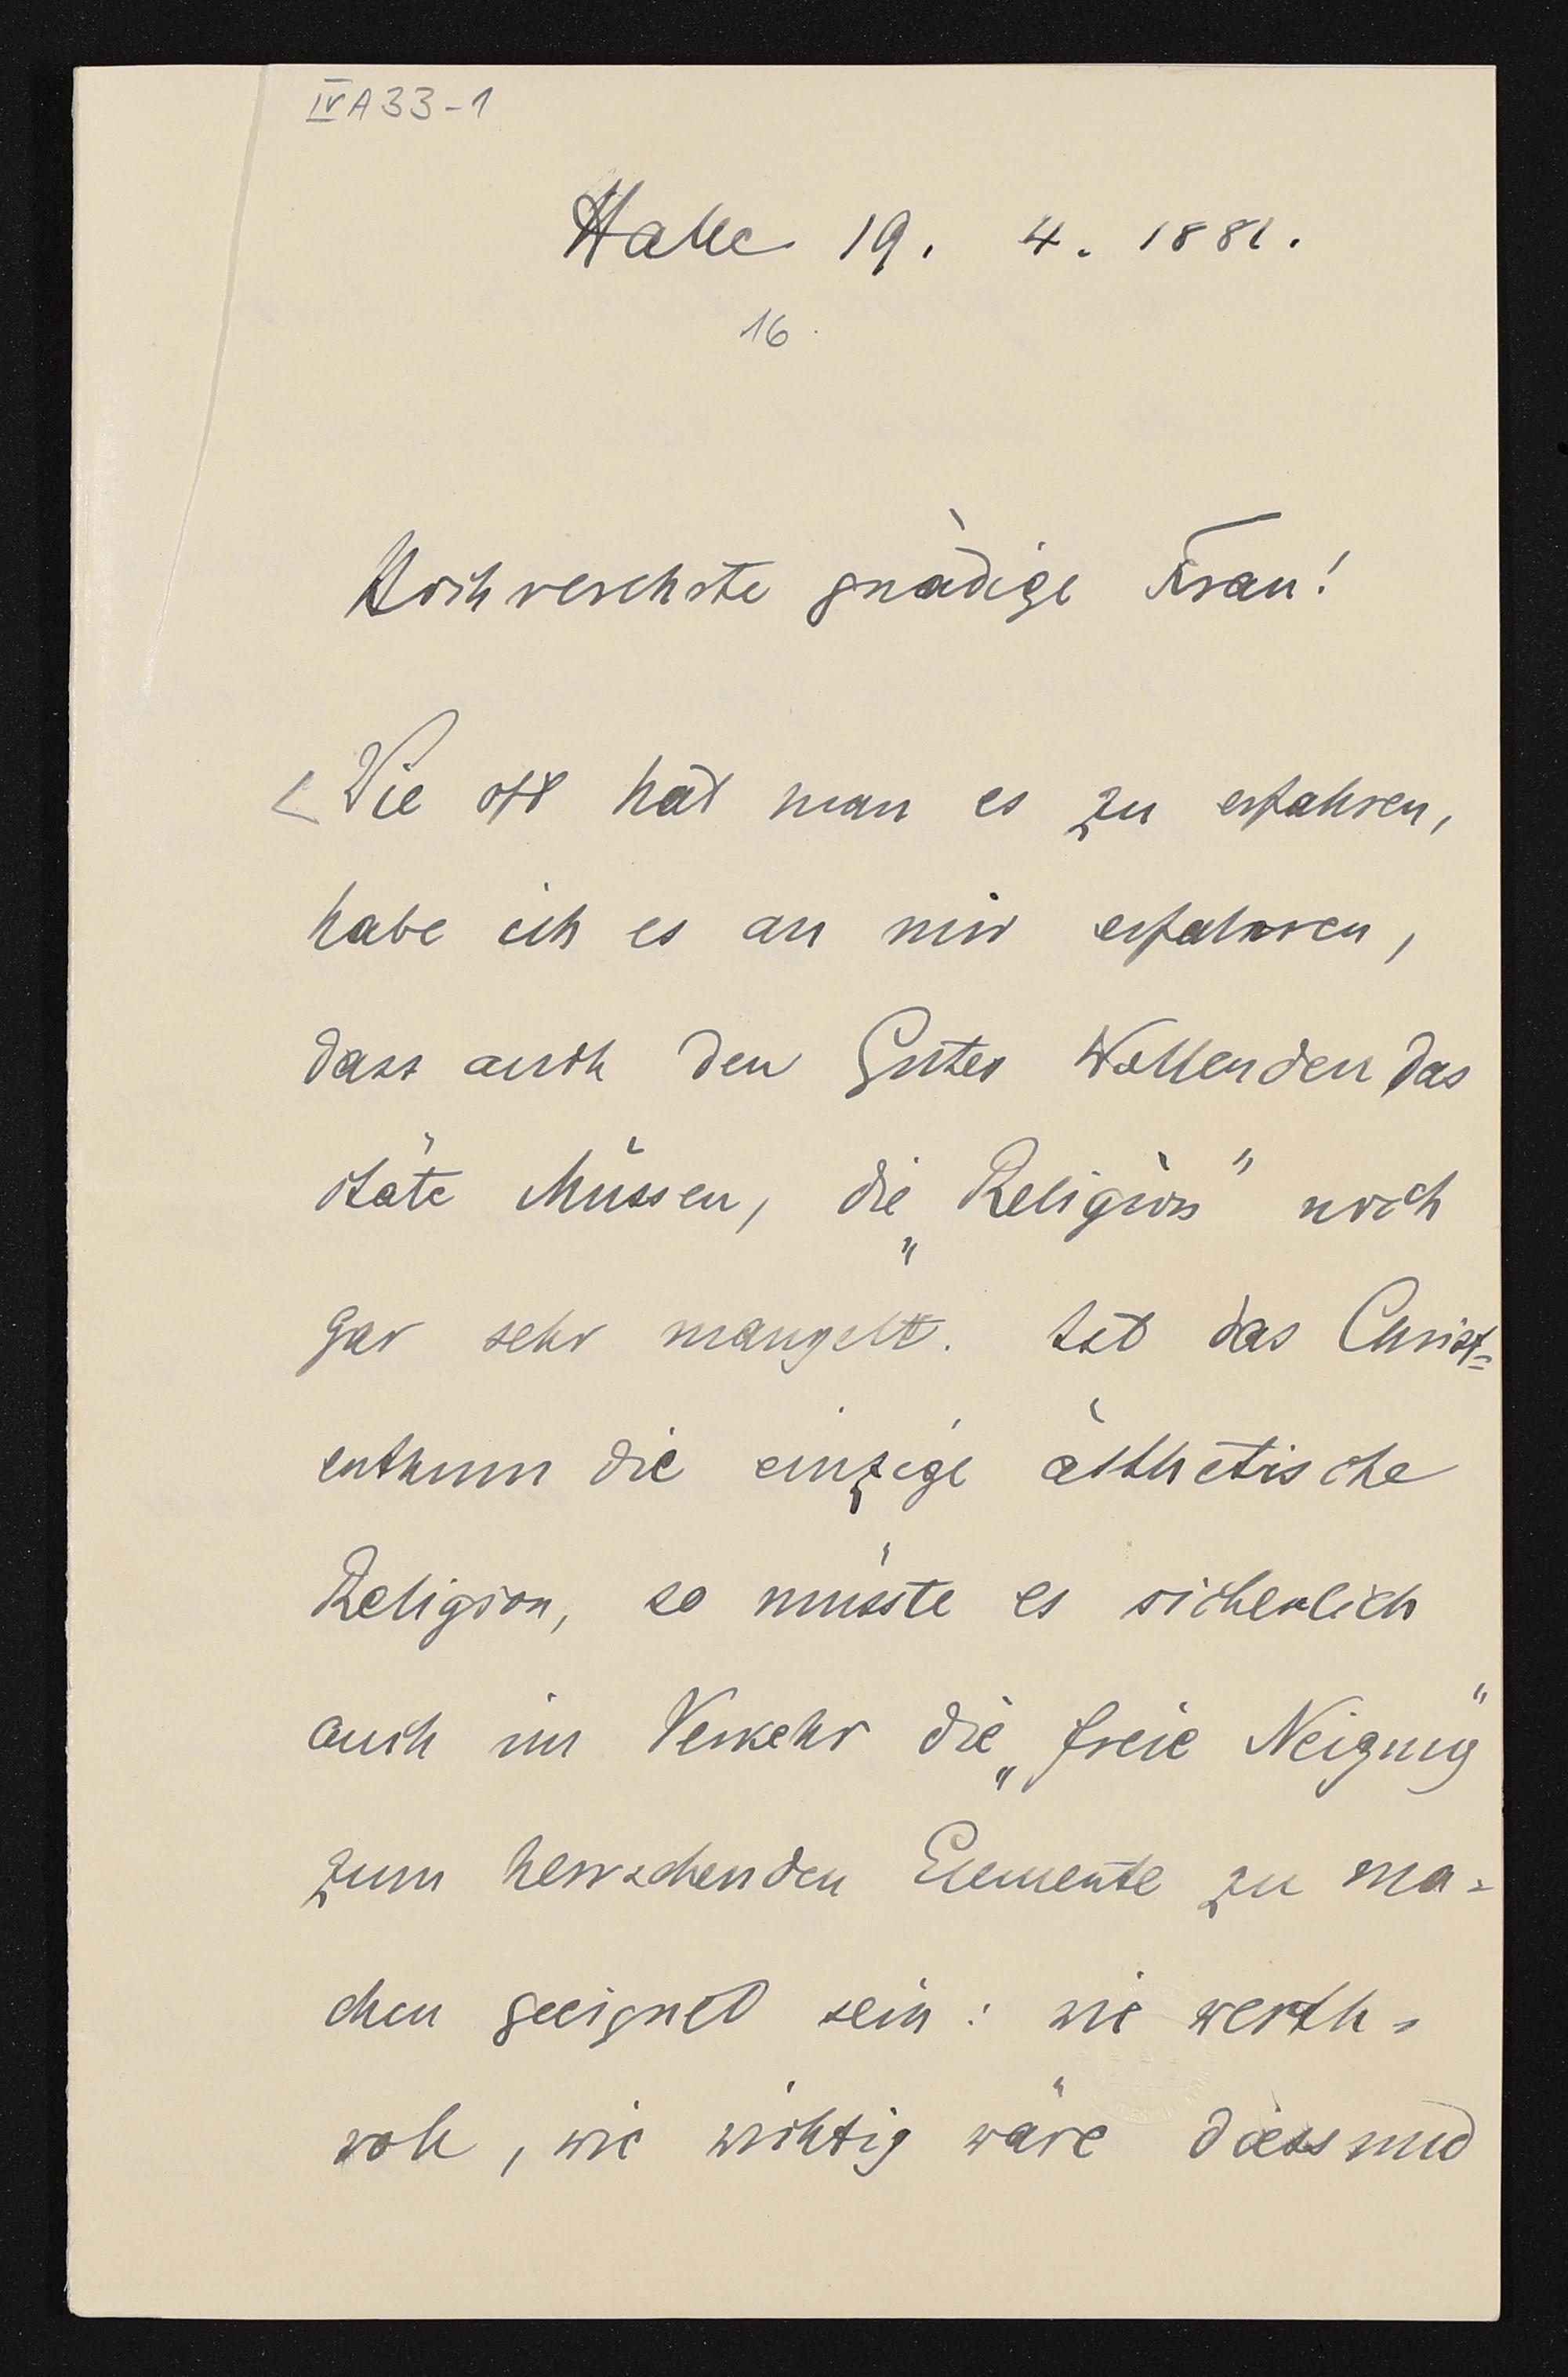 IV A 33-1
Halle 19. 4. 1881.
16.
Hochverehrte gnädige Frau!
< Wie oft hat man es zu erfahren,
habe ich es an mir erfahren,
dass auch den Gutes Wollenden das
stäte Müssen, die „Religion" noch
gar sehr mangelt. Ist das Christ=
enthum die einzige ästhetische
Religion, so müsste es sicherlich
auch im Verkehr die „freie Neigung"
zum herrschenden Elemente zu ma=
chen geeignet sein: wie werth=
voll, wie wichtig wäre diess und